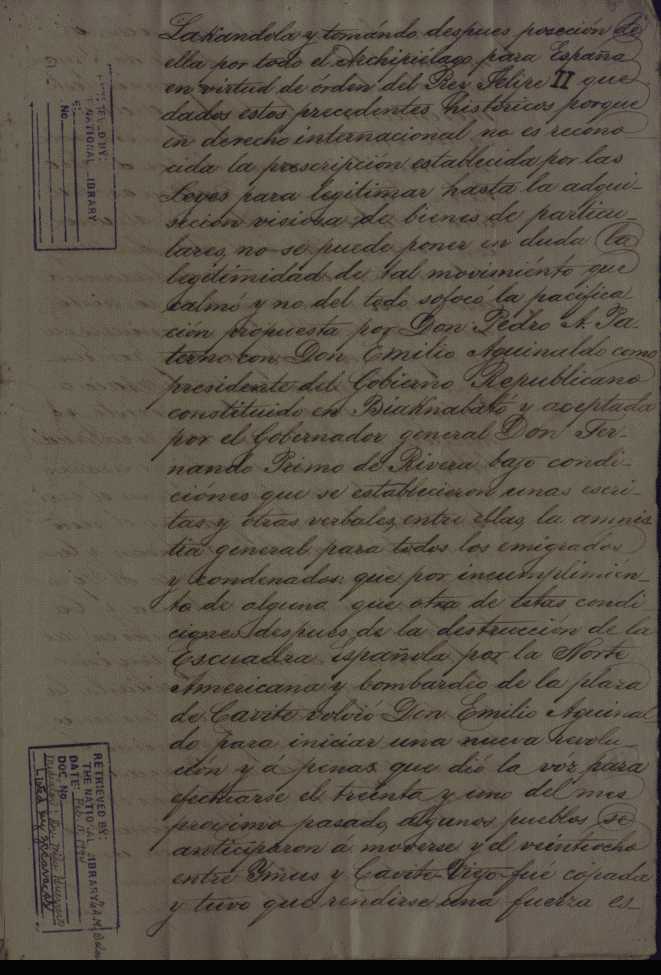 Lakandola y tomándo despues poseción de
ella por todo el Archipiélago para España
en virtud de órden del Rey Felipe II que
dados estos precedentes históricos porque
en derecho internacional no es recono
cida la prescripción establecida por las
Leyes para legitimar hasta la adqui-
sición visiosa de bienes de particu-
lares, no se puede poner en duda la
legitimidad de tal movimiénto que
calmó y no del todo sofocó la pacifica-
ción propuesta por Don Pedro A. Pa-
terno con Don Emilio Aguinaldo como
presidente del Gobierno Republicano
constituido en Biaknabató y aceptada
por el Gobernador general Don Fer-
nando Primo de Rivera bajo condi-
ciónes que se establecieron unas escri-
tas y otras verbales, entre ellas, la amnis
tia general para todos los emigrados
y condenados: que por incumplimién-
to de alguna que otra de estas condi-
ciones despues de la destrucción de la
Escuadra española por la Norte
Americana y bombardéo de la plaza
de Cavite volvió Don Emilio Aguinal
do para iniciar una nueva revolu-
ción y á penas que dió la voz para
efectuarse el treinta y uno del mes
proximo pasado, algunos pueblos se
anticiparon a moverse y el veintiocho
entre Ymus y Cavite-Viejo fué copada
y tuvo que rendirse una fuerza es-
RETRIEVED BY:
THE NATIONAL LIBRARY
DATE:
DOC. No.
NATIONAL LIBRARY
No.